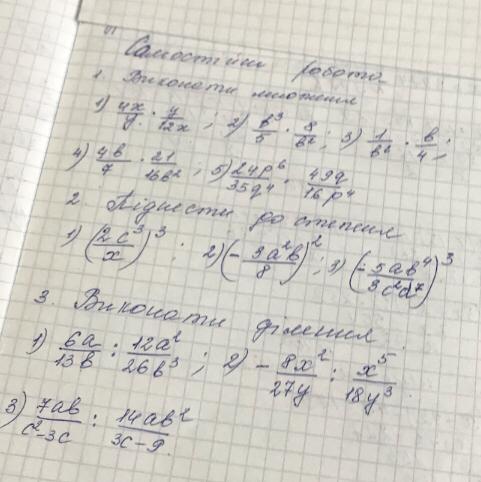 Самостійна робота
1. Виконати множення
1) 4x/y · y/12x ; 2) b³/5 · 8/b² ; 3) 1/b² · b/4 ;
4) 4b/7 · 21/16b² ; 5) 24p⁶/35q⁴ · 49q/16p⁴
2. Піднести до степеня
1) (2c³/x)³ ; 2) (-3a²b/8)² ; 3) (-5ab⁴/3c²d⁷)³
3. Виконати ділення
1) 6a/13b : 12a²/26b³ ; 2) -8x²/27y : x⁵/18y³
3) 7ab/c²-3c : 14ab²/3c-9